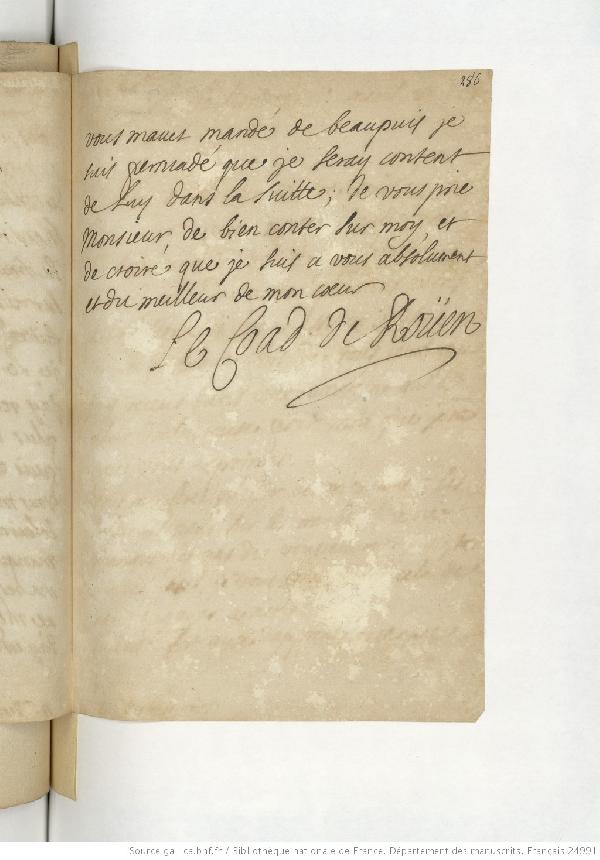 286
vous mavet mandé de beaupuis je
suis persuadé que je seray content
de luy dans la suitte; Je vous prie
Monsieur, de bien conter sur moy, et
de croire que je suis a vous absolument
et du meilleur de mon cœur
Le Coad. de Roüen
Source gallica.bnf.fr / Bibliothèque nationale de France. Département des manuscrits. Français 24991